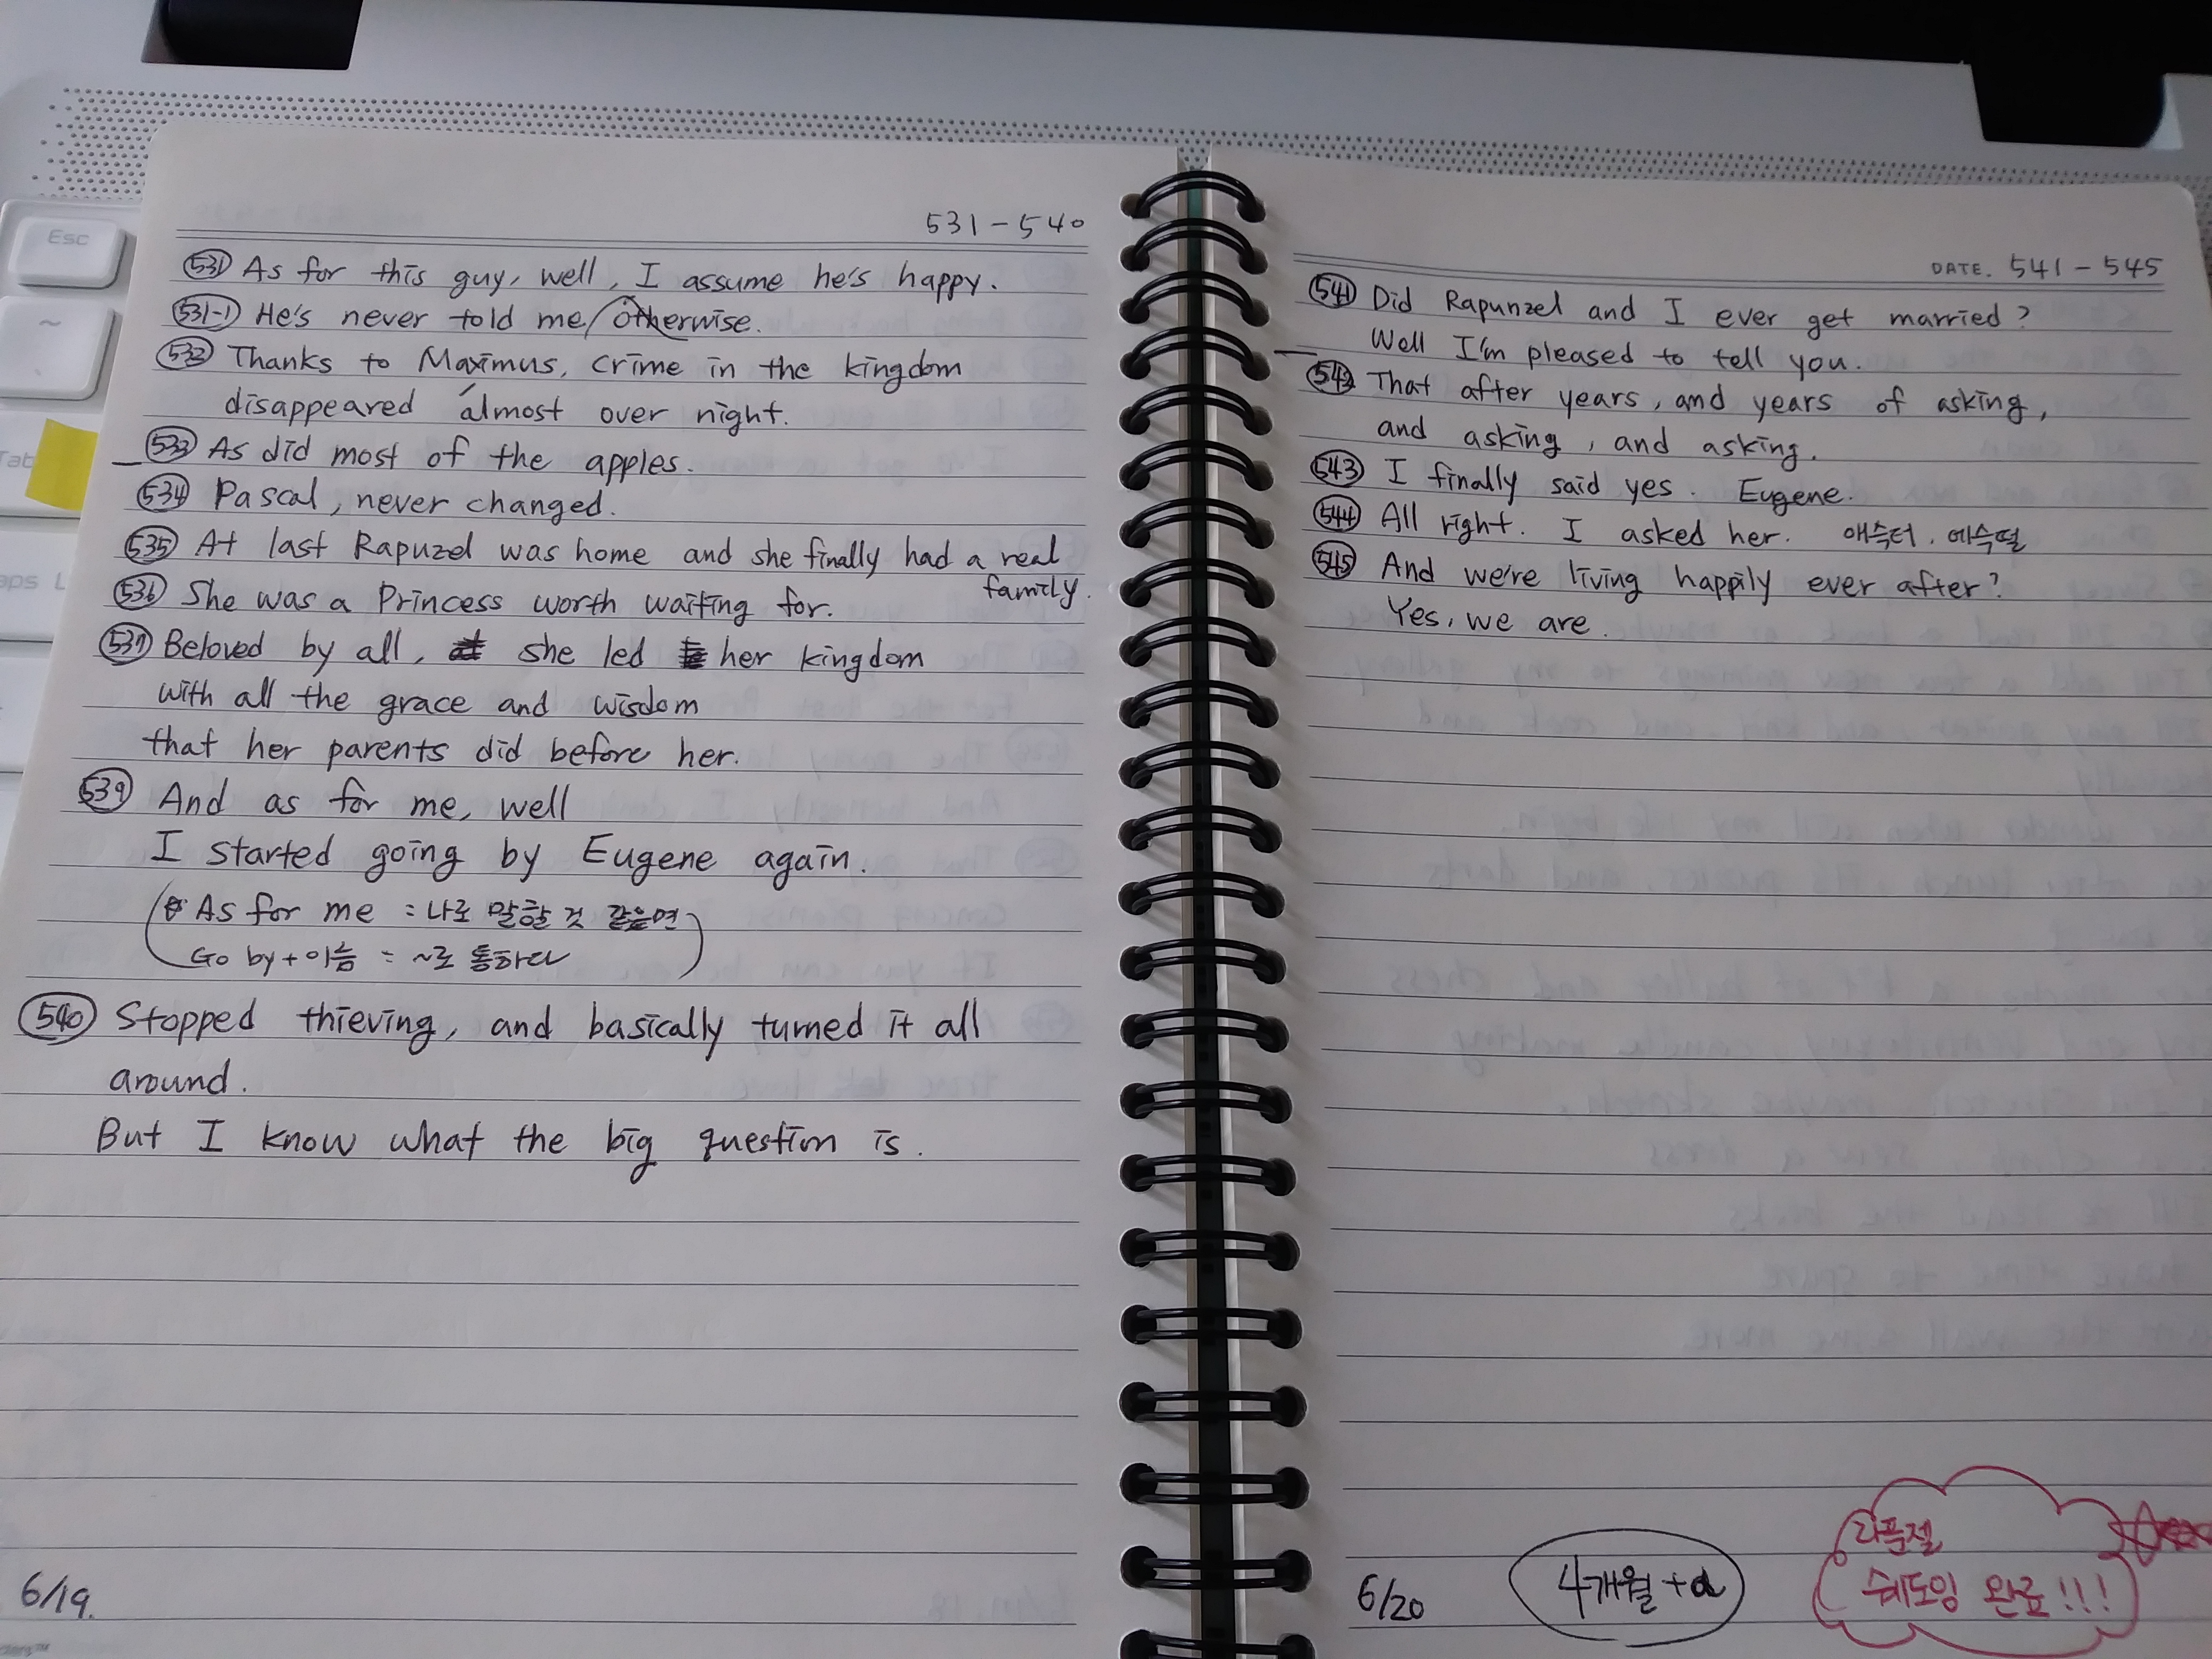 Esc
~
Tab
aps L
531 - 540
531 As for this guy, well, I assume he's happy.
531-1 He's never told me/otherwise.
532 Thanks to Maximus, crime in the kingdom
disappeared almost over night.
533 As did most of the apples.
534 Pascal, never changed.
535 At last Rapuzel was home and she finally had a real
family.
536 She was a Princess worth waiting for.
537 Beloved by all, she led her kingdom
with all the grace and wisdom
that her parents did before her.
539 And as for me, well
I started going by Eugene again.
As for me = 나로 말할 것 같으면
Go by + 이름 = ~로 통하다
540 Stopped thieving, and basically turned it all
around.
But I know what the big question is.
6/19.
DATE. 541 - 545
541 Did Rapunzel and I ever get married?
Well I'm pleased to tell you.
542 That after years, and years of asking,
and asking, and asking.
543 I finally said yes. Eugene.
544 All right. I asked her. 애슥터. 에슥떨
545 And we're living happily ever after?
Yes, we are.
6/20
4개월 +α
라푼젤
쉐도잉 완료!!!